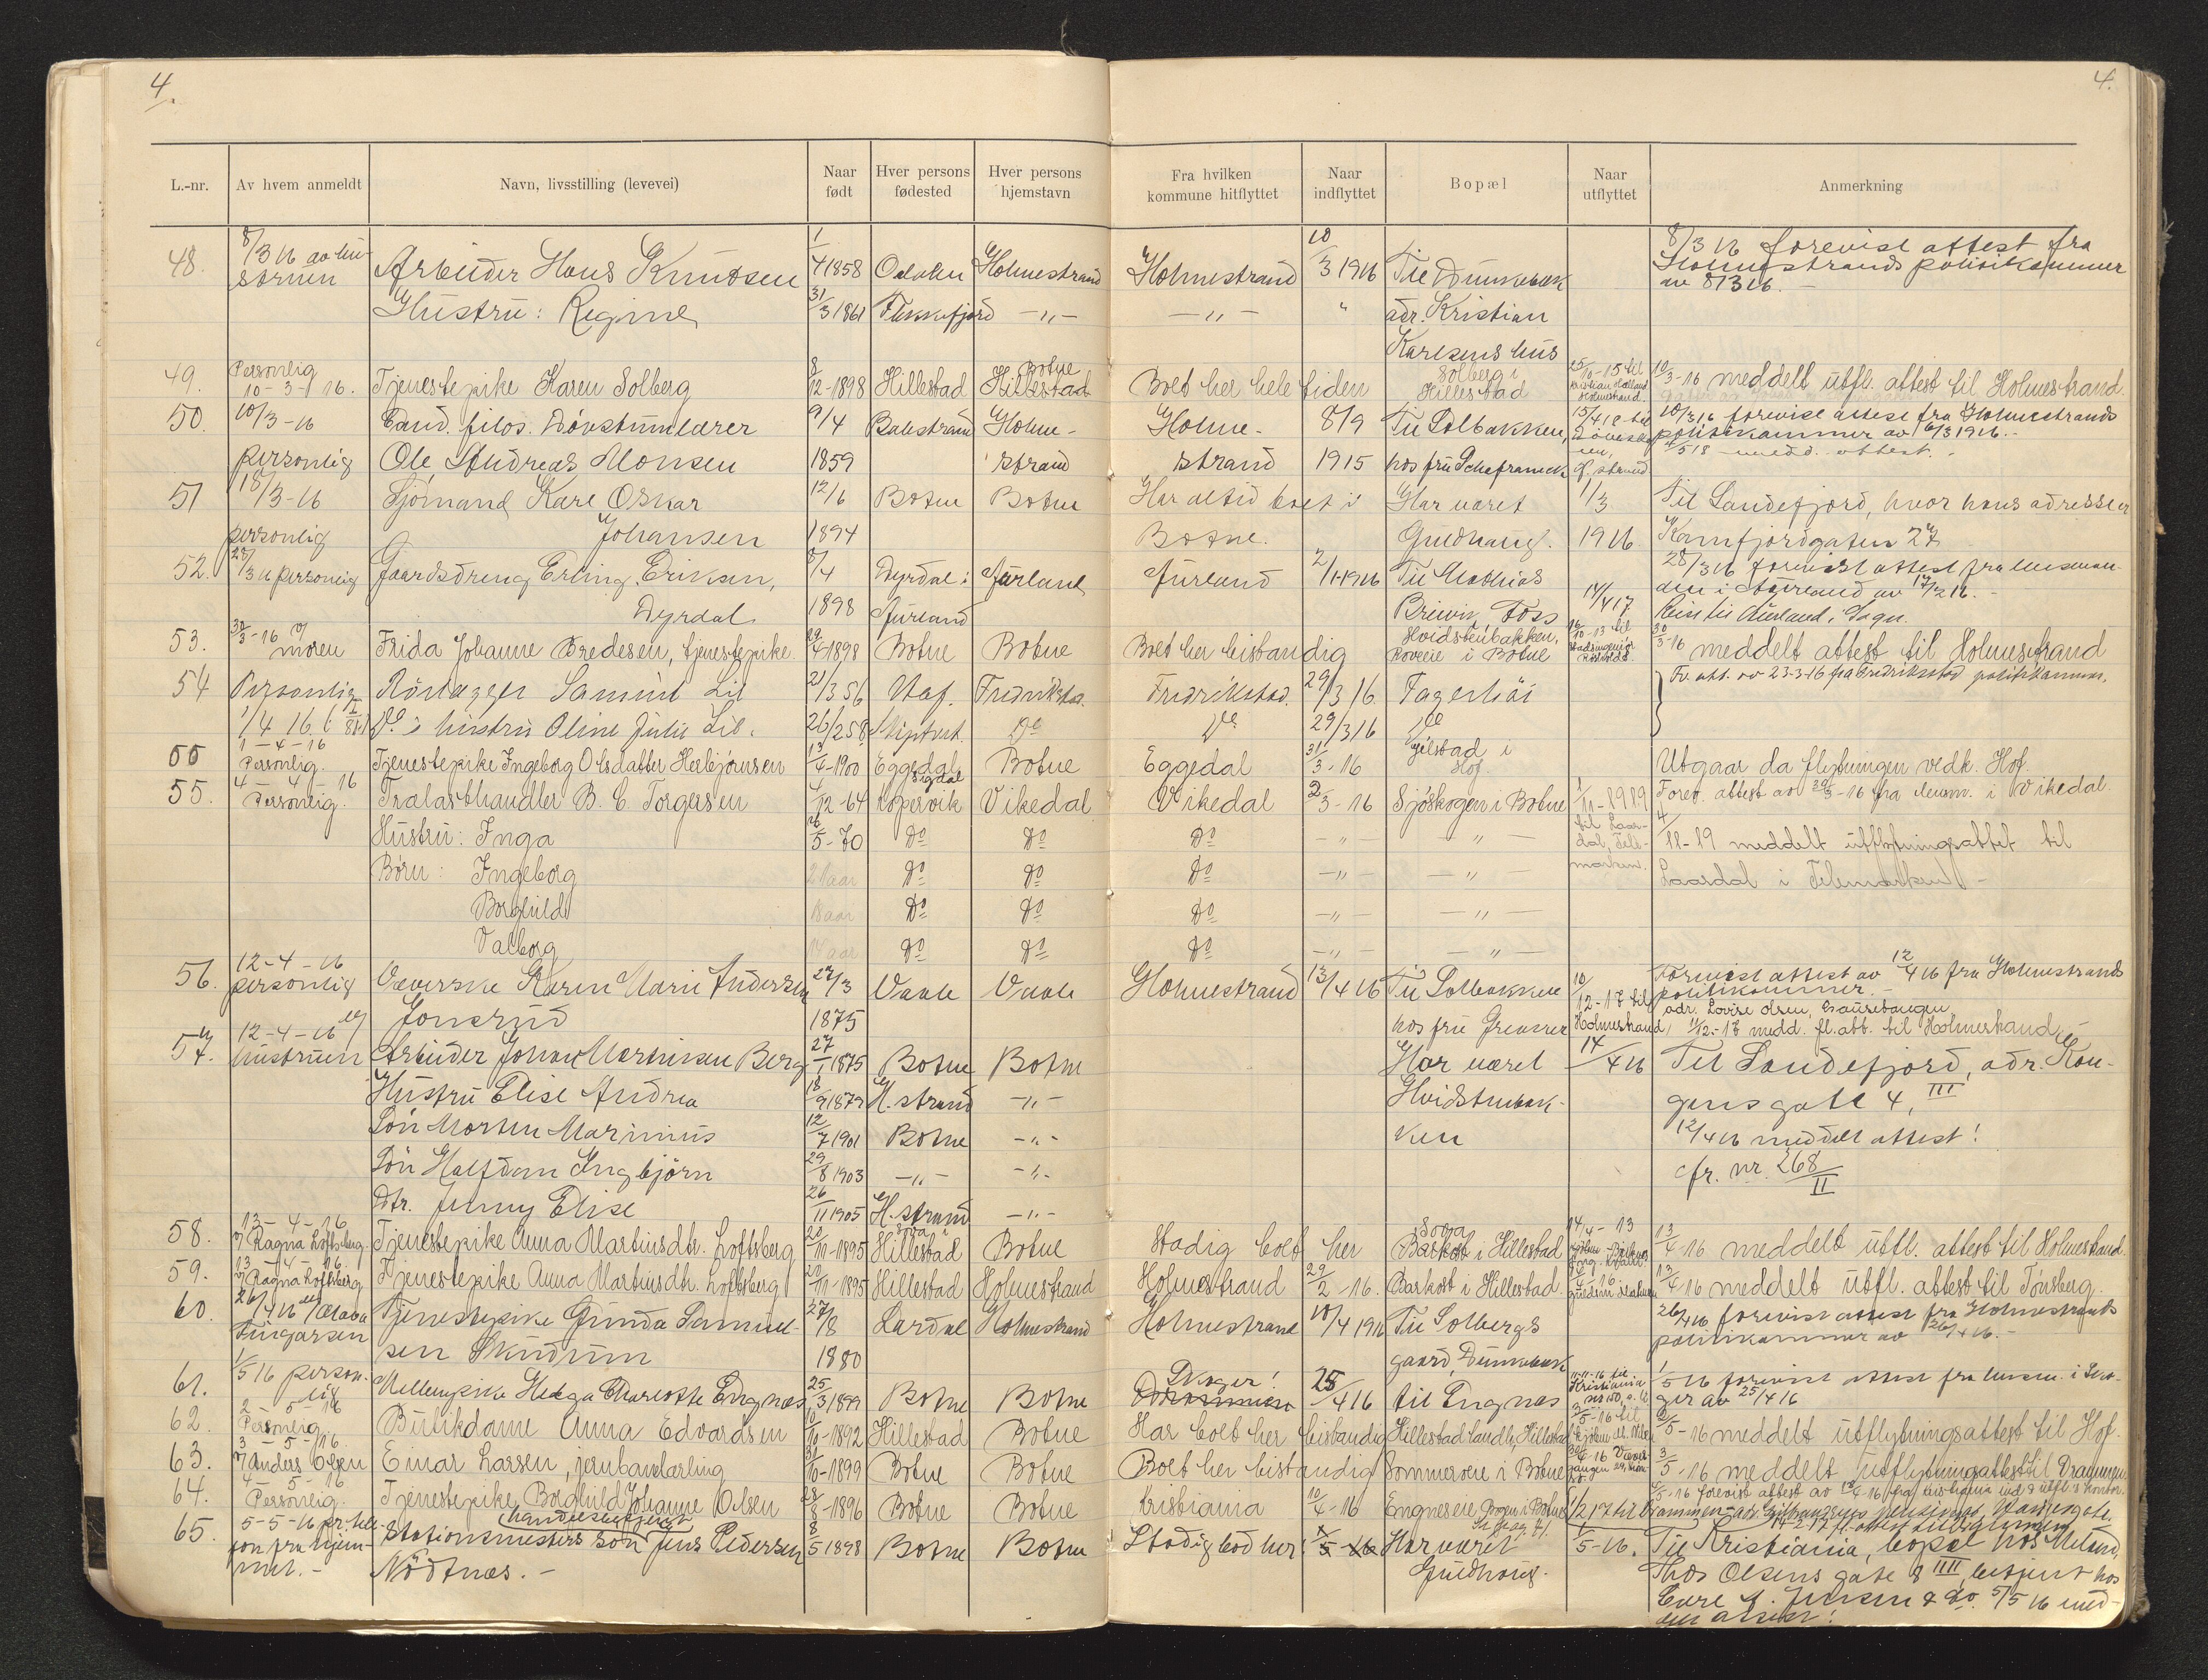 4.
4.
L.-nr.
Av hvem anmeldt
Navn, livsstilling (levevei)
Naar født
Hver persons fødested
Hver persons hjemstavn
Fra hvilken kommune hitflyttet
Naar indflyttet
Bopæl
Naar utflyttet
Anmerkning
48. 8/3 16 av hu- Arbeider Hans Knudsen 1/4 1858 Holmestrand Holmestrand 10/3 1916 Til Dunkebæk 8/3 16 forevist attest fra
struen Holmestrands politikammer
av 8/3 16.
Hustru: Regine 31/3 1861 Flekkefjord -"- -"- " adr. Kristian
Karlsens hus
49. Personlig Tjenestepike Karen Solberg 8/12-1898 Hillestad Botne Boet her hele tiden Solberg i 10/3-16 meddelt utfl. attest til Holmestrand.
10-3-16. Hillestad Hillestad
50. 10/3-16 Cand. filos. Døvstumlærer 9/4 Balestrand Holme- Holme- 8/9 Til Solbakken, 10/3 16 forevist attest fra Holmestrands
politikammer av 6/3 1916.-
personlig Ole Andreas Monsen 1859 strand strand 1915 hos fru
51 18/3-16 Sjømand Karl Oskar 12/6 Botne Botne Har altid boet i Har været 1/3 Til Sandefjord, hvor hans adresse er
personlig Johansen 1894 Botne. Gudhaug. 1916 Kamfjordgaten 27
52. 28/3 16 personlig Gaardsdreng Erling Eriksen, 8/4 Dyrdal i Aurland Aurland 2/1-1916 Til Mathias 28/3 16 forevist attest fra lensman-
den i Aurland av 17/3 16.-
Dyrdal 1898 Aurland Foss 14/4 17 Reist til Aurland i Sogn.
53. 30/3-16 v/ moren Frida Johanne Bredesen, tjenestepike. 29/4 1898 Botne Botne Boet her bistandig Hvidstenbakken, 30/3-16 meddelt attest til Holmestrand
i Botne
54 Personlig Rørlægger Samuel Lie 21/3 56 Fredrikstad. Fredrikstad. 29/3 16. Fagerhøi Fr. att. av 23-3-16 fra Fredrikstad politikammer.
1/4 16. Do's hustru Oline Julie Lie. 26/2 58. Do Do 29/3 16 Do
55 1-4-16 Personlig. Tjenestepike Ingeborg Olsdatter Herbjørnsen Eggedal Sigdal Botne Eggedal 31/3-16 i Hof. Utgaar da flytningen vedk. Hof.
55. 4-4-16 Personlig. Trælasthandler B. C. Torgersen 4/12-64 Kopervik Vikedal Vikedal 2/3-16 Sjøskogen i Botne 1/11-1919 Forev. attest av 30/3-16 fra lensm. i Vikedal.
til Laar-
dal, Tele-
marken.
Hustru: Inga 26/5-70 Do Do Do -"- -"- 4/11-19 meddelt utflytningsattest til
Børn: Ingeborg 21 aar Do Do Do -"- -"- Laardal i Telemarken -
Borghild 18 aar Do Do Do -"- -"-
Valborg 14 aar Do Do Do -"- -"-
56. 12-4-16 personlig Væverske Karen Marie Andersen 27/3 Vaale Vaale Holmestrand 13/4 16 Til Solbakken 10/12-17 til Forevist attest av 12/4 16 fra Holmestrands
politikammer.-
Jonsrud 1875 hos fru Holmestrand, adr. Lovise Olsen,
11/12-17 medd. fl.att. til Holmestrand.
57. 12-4-16 v/ hustruen Arbeider Johan Martinsen Berg 27/1 1875 Botne Botne Har været 14/4 16 Til Sandefjord, adr. Kon-
Hustru Elise Andrea 18/9 1879 H.strand -"- Hvidstenbak- gens gate 4, III
Søn Morten Marinius 12/7 1901 Botne -"- ken 12/4 16 meddelt attest!
Søn Halfdan Ingbjørn 29/8 1903 -"- -"- cfr. nr. 268/II
Dtr. Jenny Elise 26/11 1905 H.strand -"-
58. 13-4-16 v/ Ragna Loftsberg. Tjenestepike Anna Martinsdtr. Loftsberg 20/11-1895 Hillestad Botne Stadig boet her Barkost i Hillestad 14/4-13 13/4-16 meddelt utfl. attest til Holmestrand.
59. 13-4-16. v/ Ragna Loftsberg Tjenestepike Anna Martinsdtr. Loftsberg 20/11-1895 Hillestad Holmestrand Holmestrand 29/2-16. Barkost i Hillestad 13/4-16 meddelt utfl. attest til Tønsberg.
60. 26/4 16 v/ Tjenestepike Gunda Samuel- 27/8 Lardal Holmestrand Holmestrand 10/4 1916 Til Solbergs 26/4 16 forevist attest fra Holmestrands
politikammer av 26/4 16.-
sen Skudrum 1880 gaard, Dunkebæk
61. 1/5 16 person-lig Mellempike Helga Charlotte Engnæs 25/3 1899 Botne Botne Skoger! 25/4 16 til Engnæs Kristiania 1/5 16 forevist attest fra lensm. i Sko-
ger av 25/4 16
62. 2-5-16 Personlig. Butikdame Anna Edvardsen 10/10-1892 Hillestad Botne Har boet her bistandig Hillestad Landh, Hillestad 2/5-16 meddelt utflytningsattest til Hof.
63. 3-5-16 v/ Anders Olsen Einar Larsen, jernbanelærling 31/10-1899 Botne Botne Boet her bistandig Sommerveie i Botne 3/5-16 meddelt utflytningsattest til Drammen
64. 4-5-16 Personlig. Tjenestepike Borghild Johanne Olsen 28/8-1896 Botne Botne Kristiania 10/4-16 Engneseie, i Botne
65. 5-5-16 pr. tele-fon fra hjem-met.- handelsbetjent Stationsmesters søn Jens Pedersen 8/5 1898 Botne Botne Stadig bod her: Har været 1/5-16. Til Kristiania, bopæl hos
Nødtnæs.- Gudhaug. Ths Olsens gate 8 IIII, betjent hos
5/5 16 med-
delt attest!